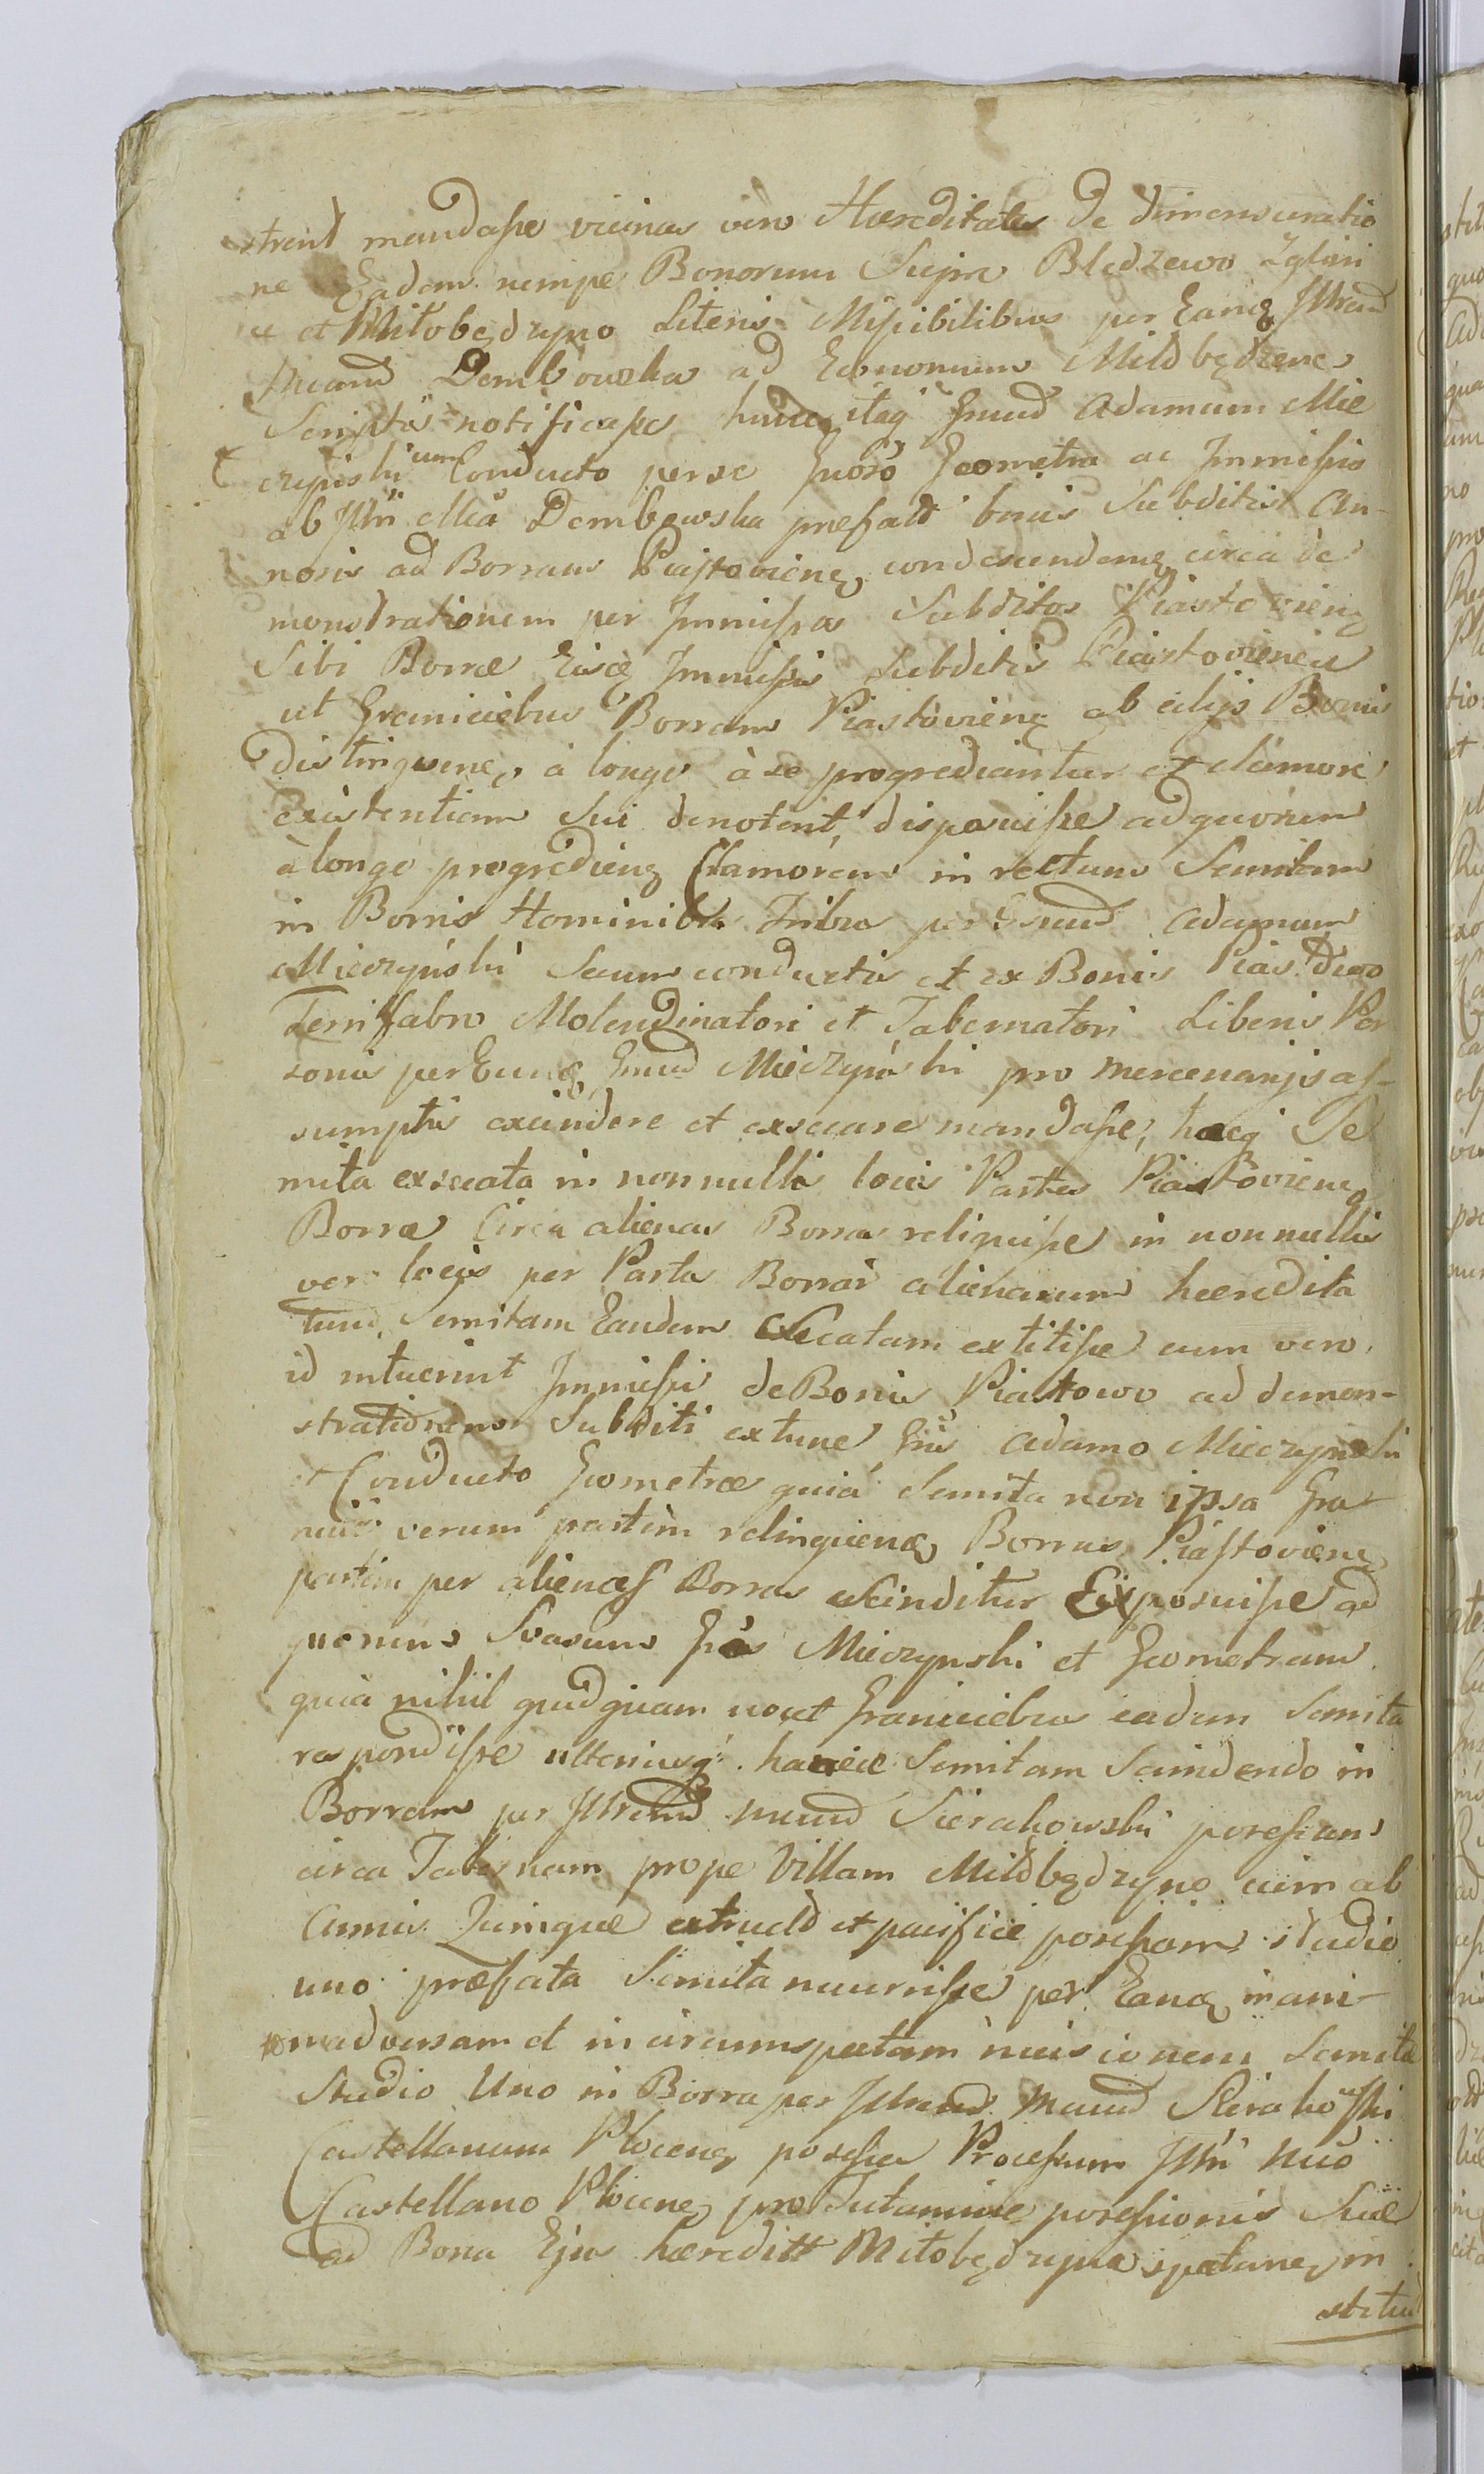 strent mandasse vicinas vero Hæreditates de dimensuratio
ne Eadem nempe Bonorum Supra Blędzewo Zglini
et Miłobędzyno Literis Missibilibus per Eanq Illrem
Mcam Dembowska ad Economum Miłobędzenc
Scriptis notificasse hincq itaq Gnud Adamum Mie
czyński cum Conducto per se Geometra ac Immissis
ab Illri Mca Dembowska præfat bonis Subditis An-
nosis ad Borram Piastovienq condescendenq circa de
monstrationem per Immissos Subditos Piastovienq
Sibi Borræ Eisq Immissis Subditis Piastoviencis
ut Graniciebus Borram Piastovienq ab alijs Bonis
distinguenq à longe à se progrediantur et clamore
Existentiam Sui denotent, disposuisse ad quorum
à longe progredienq Clamorem in rectum Semitam
in Borris Hominibus Tribus per Gnud Adamum
Mieczyński Secum conductis et ex Bonis Piastowo
Ferrifabro Molendinatori et Tabernatori Liberis Per
sonis per Eunq Gnud Mieczyński pro mercenarijs as-
sumptis exscindere et exsecare mandasse, hæcq Se
mita exsecata in nonnullis locis Partes Piastovienq
Borræ Circa alienas Borras reliquisse in nonnullis
vero locis per Partes Borrar alienarum hæredita
tum Semitam Eandem exsecatam extitisse cum vero
id intuerint Immissi de Bonis Piastowo ad demon-
strationem Subditi extunc Adamo Mieczyński
et Conducto Geometræ quia Semita non ipsa Gra
nicie verum partim relinquenq Borras Piastovienq
partim per alienas Borras exscinditur Exposuisse ad
quorum Svasum Mieczynski et Geometram
quia nihil quidquam nocet Graniciebus eadem Semita
respondisse ulteriusq hancce Semitam Scindendo in
Borram per Illrem Sierakowski possessam
circa Tabernam prope Villam Miłobędzyno cum ab
Annis Quinque et pacifice possessam studio
uno præfata Semita incurrisse per Eanq inani-
madversam et incircumspectam incisionem Semitæ
Studio Uno in Borra per Illrem Mcum Sierakowski
Castellanum Plocenq possessa Processum Illri
Castellano Plocenq pro Tutamine possessionis Suæ
ad Bona Ejus hæreditt Miłobędzyno spectanq in
stitui